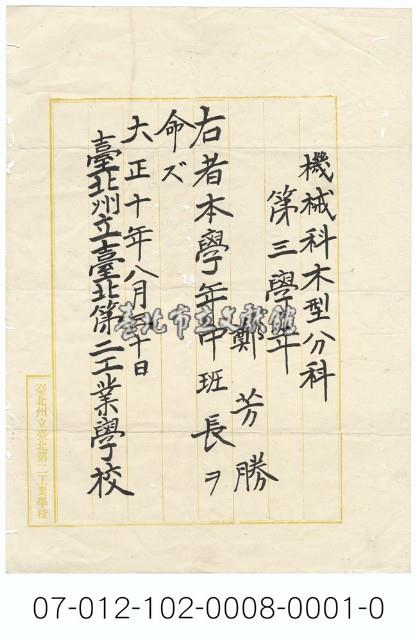 機械科木型分科
第三學年
鄭芳勝
右者本學年中班長ヲ
命ズ
大正十年八月十日
臺北州立臺北第二工業學校
臺北州立臺北第二工業學校
臺北市立文獻館
07-012-102-0008-0001-0